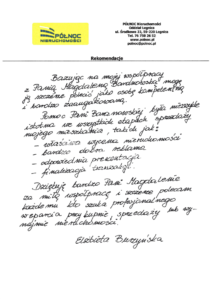 PÓŁNOC
NIERUCHOMOŚCI
PÓŁNOC Nieruchomości
Oddział Legnica
59-220 Legnica
Rekomendacje
Bazując na mojej współpracy
z Panią Magdaleną mogę
ją szczerze polecić jako osobę kompetentną
i bardzo zaangażowaną.
Pomoc Pani była niezwykle
istotna we wszystkich etapach sprzedaży
mojego mieszkania, takich jak:
- właściwa wycena nieruchomości
- bardzo dobra reklama
- odpowiednia prezentacja
- finalizacja transakcji
Dziękuję bardzo Pani Magdalenie
za miłą współpracę i szczerze polecam
każdemu kto szuka profesjonalnego
wsparcia przy kupnie, sprzedaży lub wy-
najmie nieruchomości.
Elżbieta